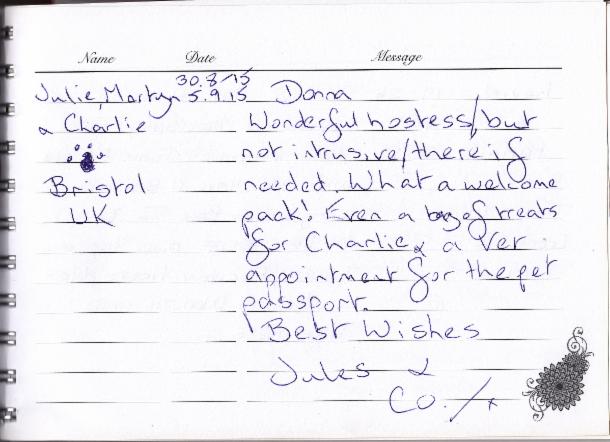 Name Date Message
30.8/15
Julie, Martyn 5.9.15 Donna
& Charlie Wonderful hostess/but
not intrusive/there if
Bristol needed. What a welcome
UK pack! Even a bag of treats
for Charlie & a Vet
appointment for the pet
passport.
Best Wishes
Jules &
Co. /x